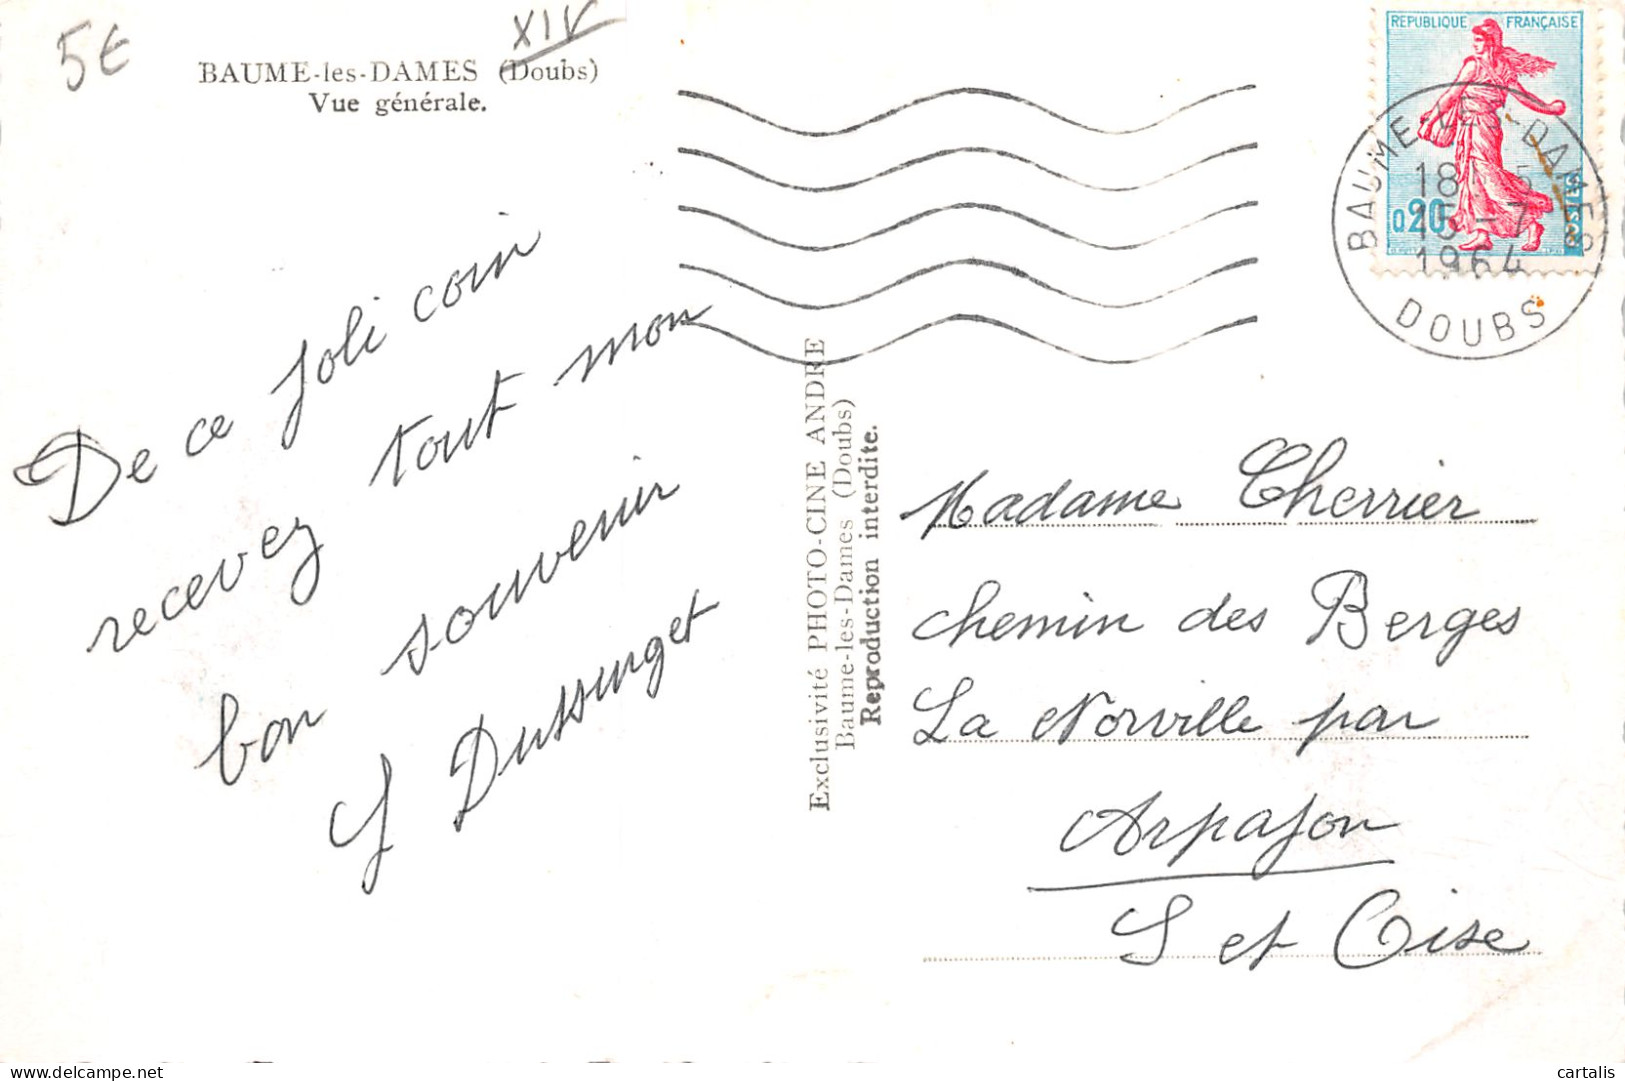 5€
XIV
BAUME-les-DAMES (Doubs)
Vue générale.
REPUBLIQUE FRANÇAISE
0,20
POSTES
BAUME-LES-DAMES
18
15-7
1964
DOUBS
De ce joli coin
recevez tout mon
bon souvenir
Y Dussurget
Exclusivité PHOTO-CINE ANDRE
Baume-les-Dames (Doubs)
Reproduction interdite.
Madame Cherrier
chemin des Berges
La Norville par
Arpajon
S et Oise
cartalis